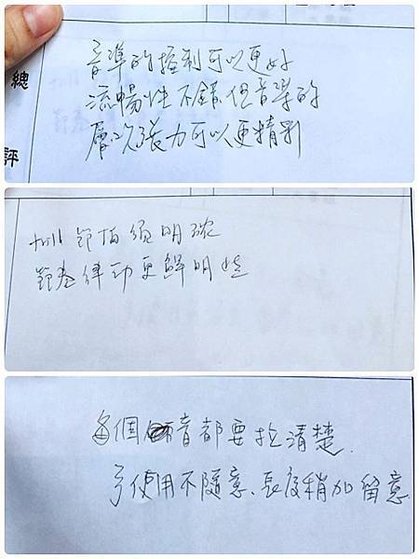 總評
音準的控制可以更好
流暢性不錯但音樂的
層次張力可以更精彩
trill 節拍須明確
節奏律動更鮮明些
每個音都要拉清楚.
弓使用不隨意、長度稍加留意